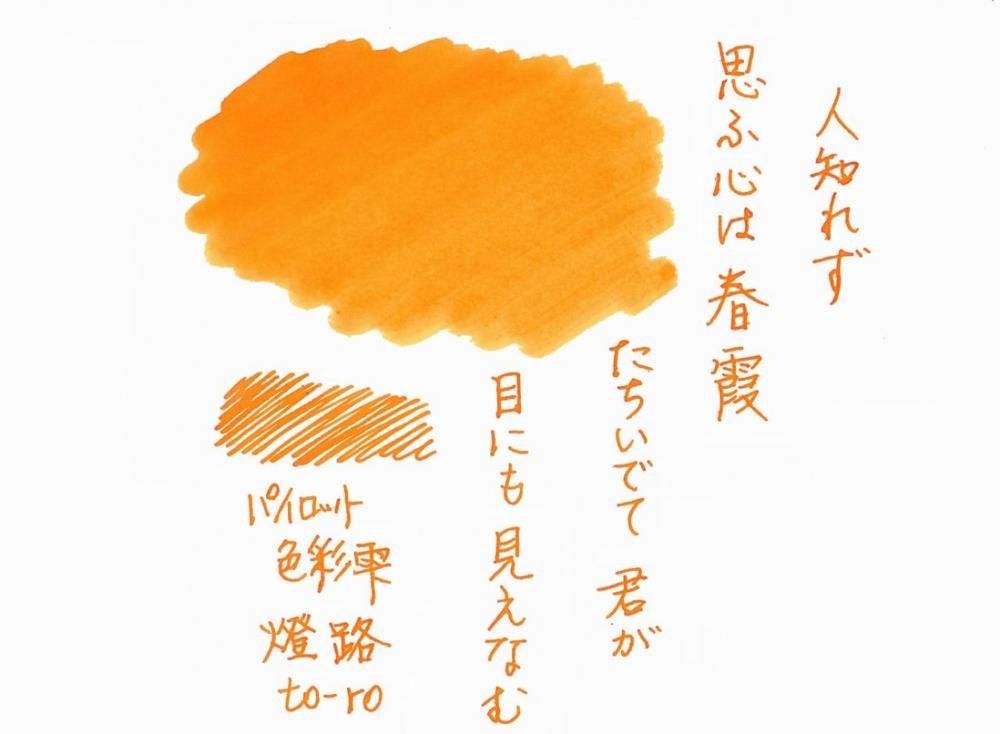 人知れず
思ふ心は 春霞
たちいでて 君が
目にも 見えなむ
パイロット
色彩雫
燈路
to-ro